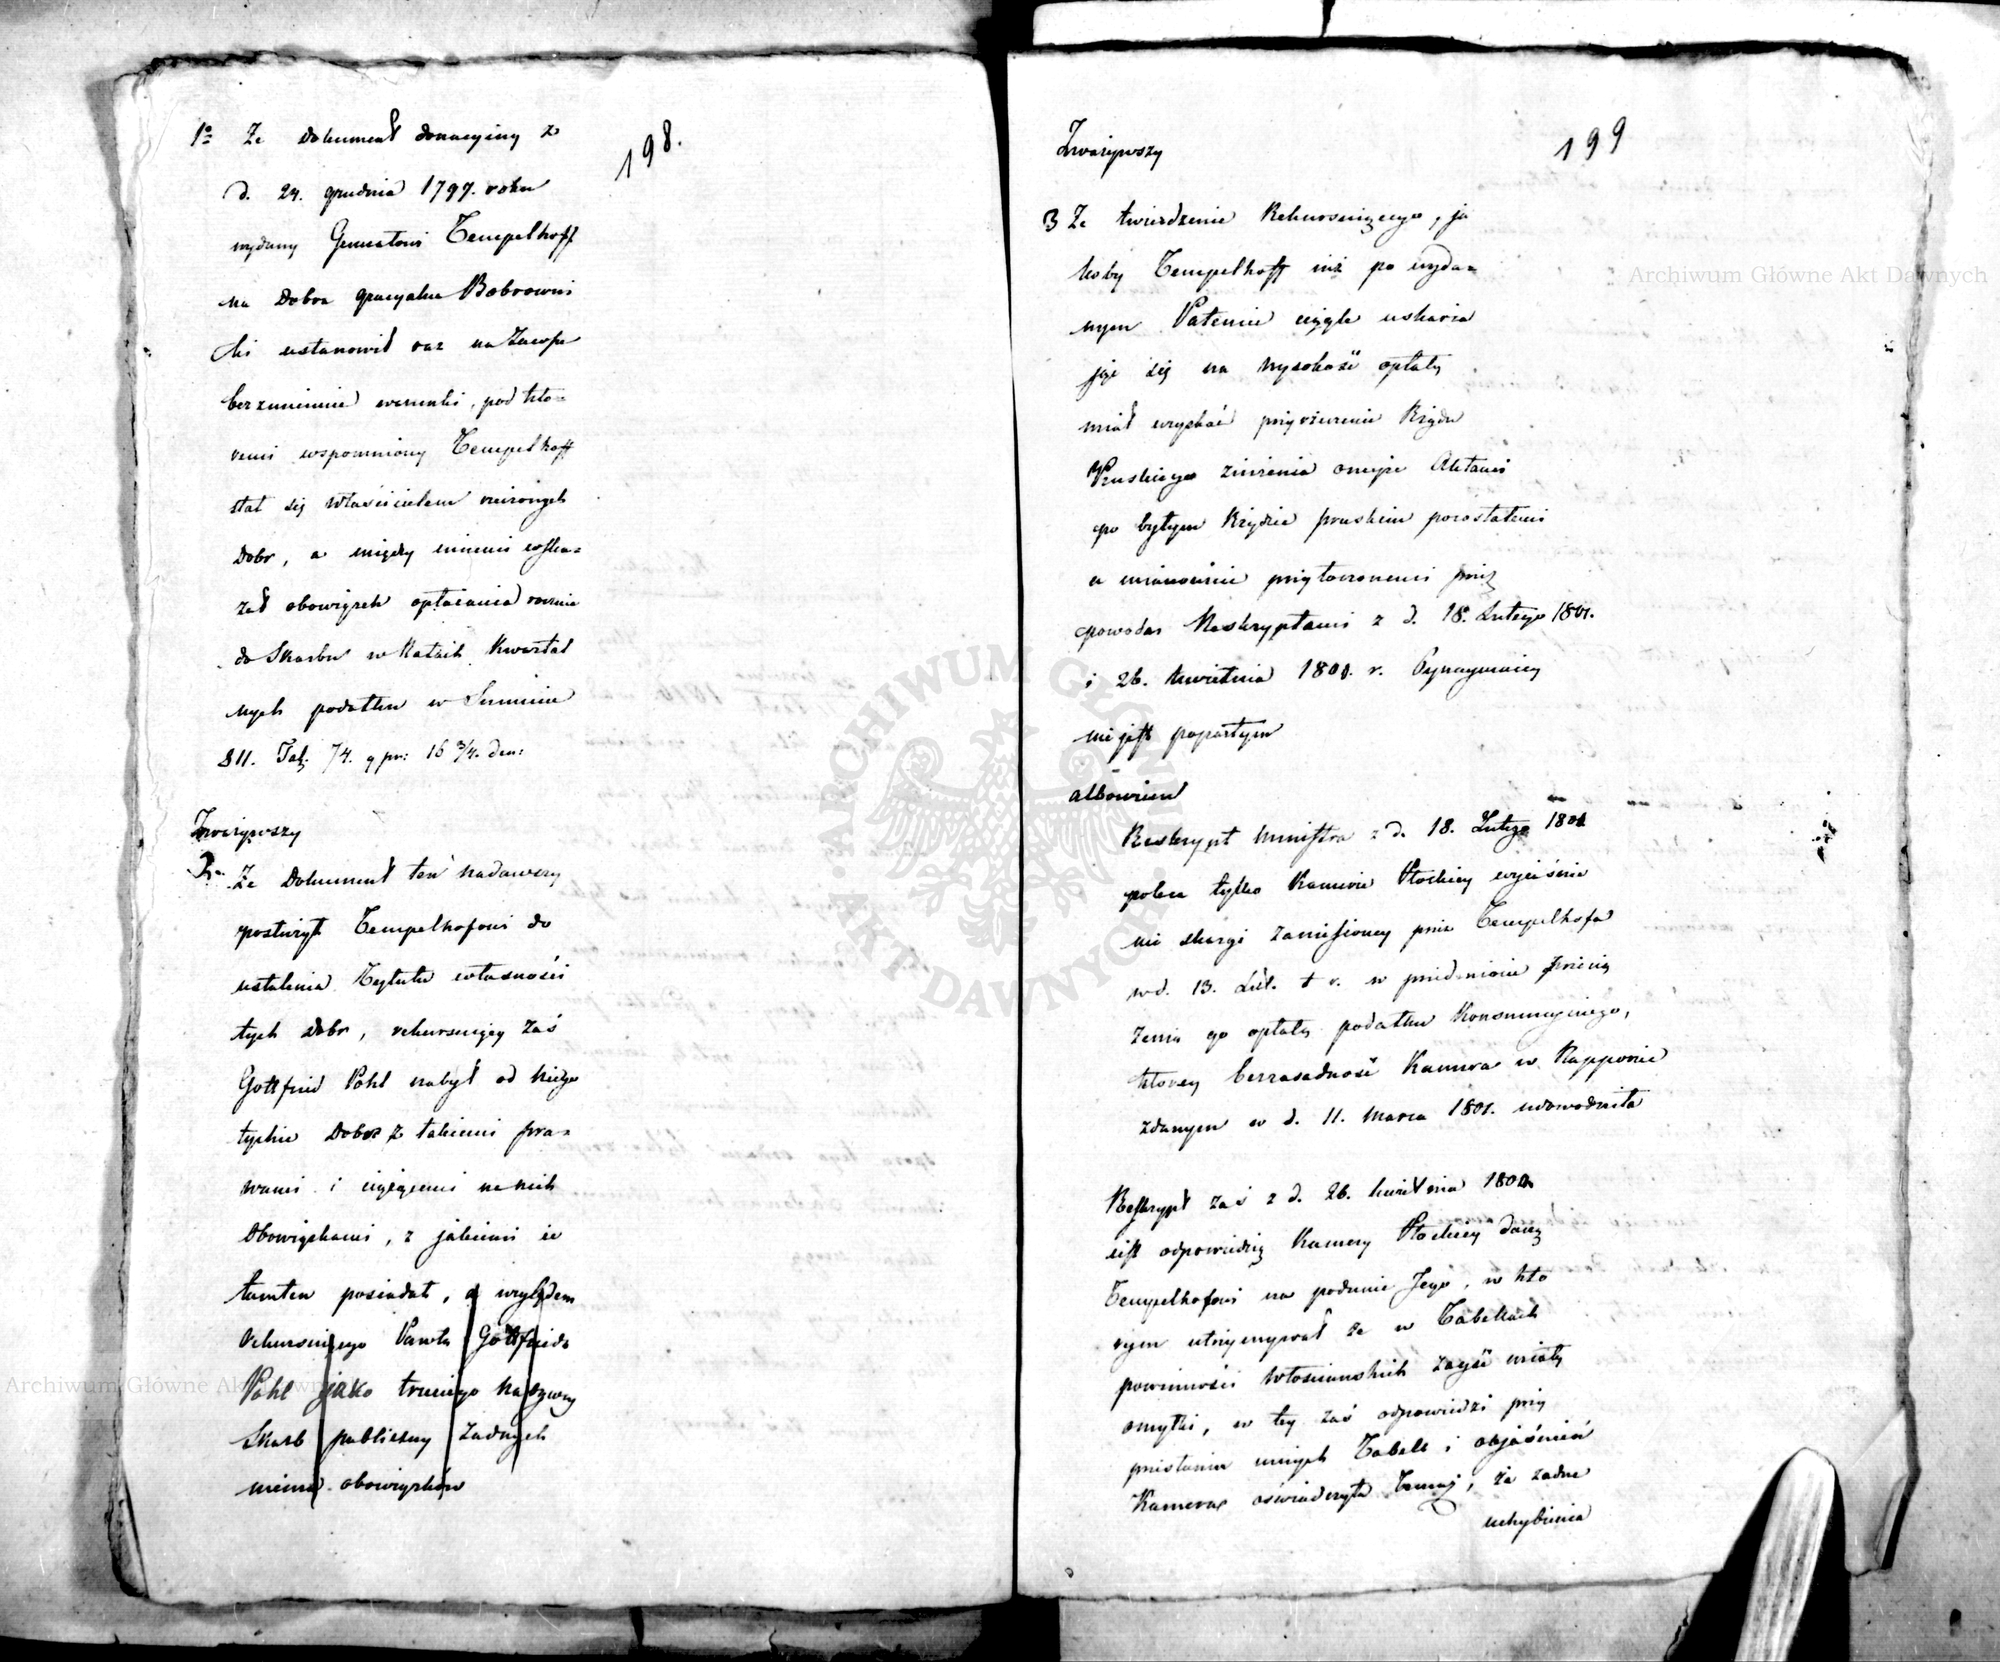 198.
1o Że Dokument donacyiny z
d. 24. grudnia 1797. roku
wydany Generałowi Tempelhoff
na Dobra gracyalne Bobrowni
cki ustanowił raz na Zawsze
bez zmiennie warunki, pod któ=
remi wspomniony Tempelhoff
stał się Właścicielem rzeczonych
Dobr, a między innemi wska=
zał obowiązek opłacania rocznie
do Skarbu w Ratach Kwartal
nych podatku w Summie
811. Tal. 74. gpr: 16 3/4. den:
Zważywszy
2. Że Dokument ten nadawczy
posłużył Tempelhofowi do
ustalenia Tytułu własności
tych Dobr, rekursuiący zaś
Gottfried Pohl nabył od niego
tychże Dobr z takiemi pra=
wami i ciążącemi na nich
Obowiązkami, z jakiemi ie
tamten posiadał, a względem
rekursuiącego Pawła Gottfrieda
Pohl jako trzeciego nabywcy
Skarb publiczny żadnych
niema obowiązków
199
Zważywszy
3 Że twierdzenie Rekursuiącego, ja
koby Tempelhoff iuż po wyda=
nym Patencie ciągle uskarża
jąc się na wysokość opłaty
miał uzyskać przyrzeczenie Rządu
Pruskiego zniżenia oneyże Aktami
po byłym Rządzie pruskim pozostałemi
a mianowicie przytoczonemi przez
powoda Reskryptami z d. 18. Lutego 1801.
i 26. kwietnia 1801. r. bynaymniey
nie jest popartym
albowiem
Reskrypt Ministra z d. 18. Lutego 1801
poleca tylko Kamerze Płockiey wyiaśnie
nie skargi zaniesioney przez Tempelhofa
w d. 13. Lut. t. r. w przedmiocie przecią
żenia go opłatą podatku konsumcyinego,
którey bezzasadność Kamera w Rapporcie
zdanym w d. 11. Marca 1801. udowodniła
Reskrypt zaś z d. 26. kwietnia 1801
iest odpowiedzią Kamery Płockiey daną
Tempelhofowi na podanie Jego, w któ
rym utrzymywał że w Tabellach
powinności Włościańskich zayść miały
omyłki, w tey zaś odpowiedzi przy
przesłaniu innych Tabell i objaśnień
Kamera oświadczyła Temuż, że żadne
uchybienia